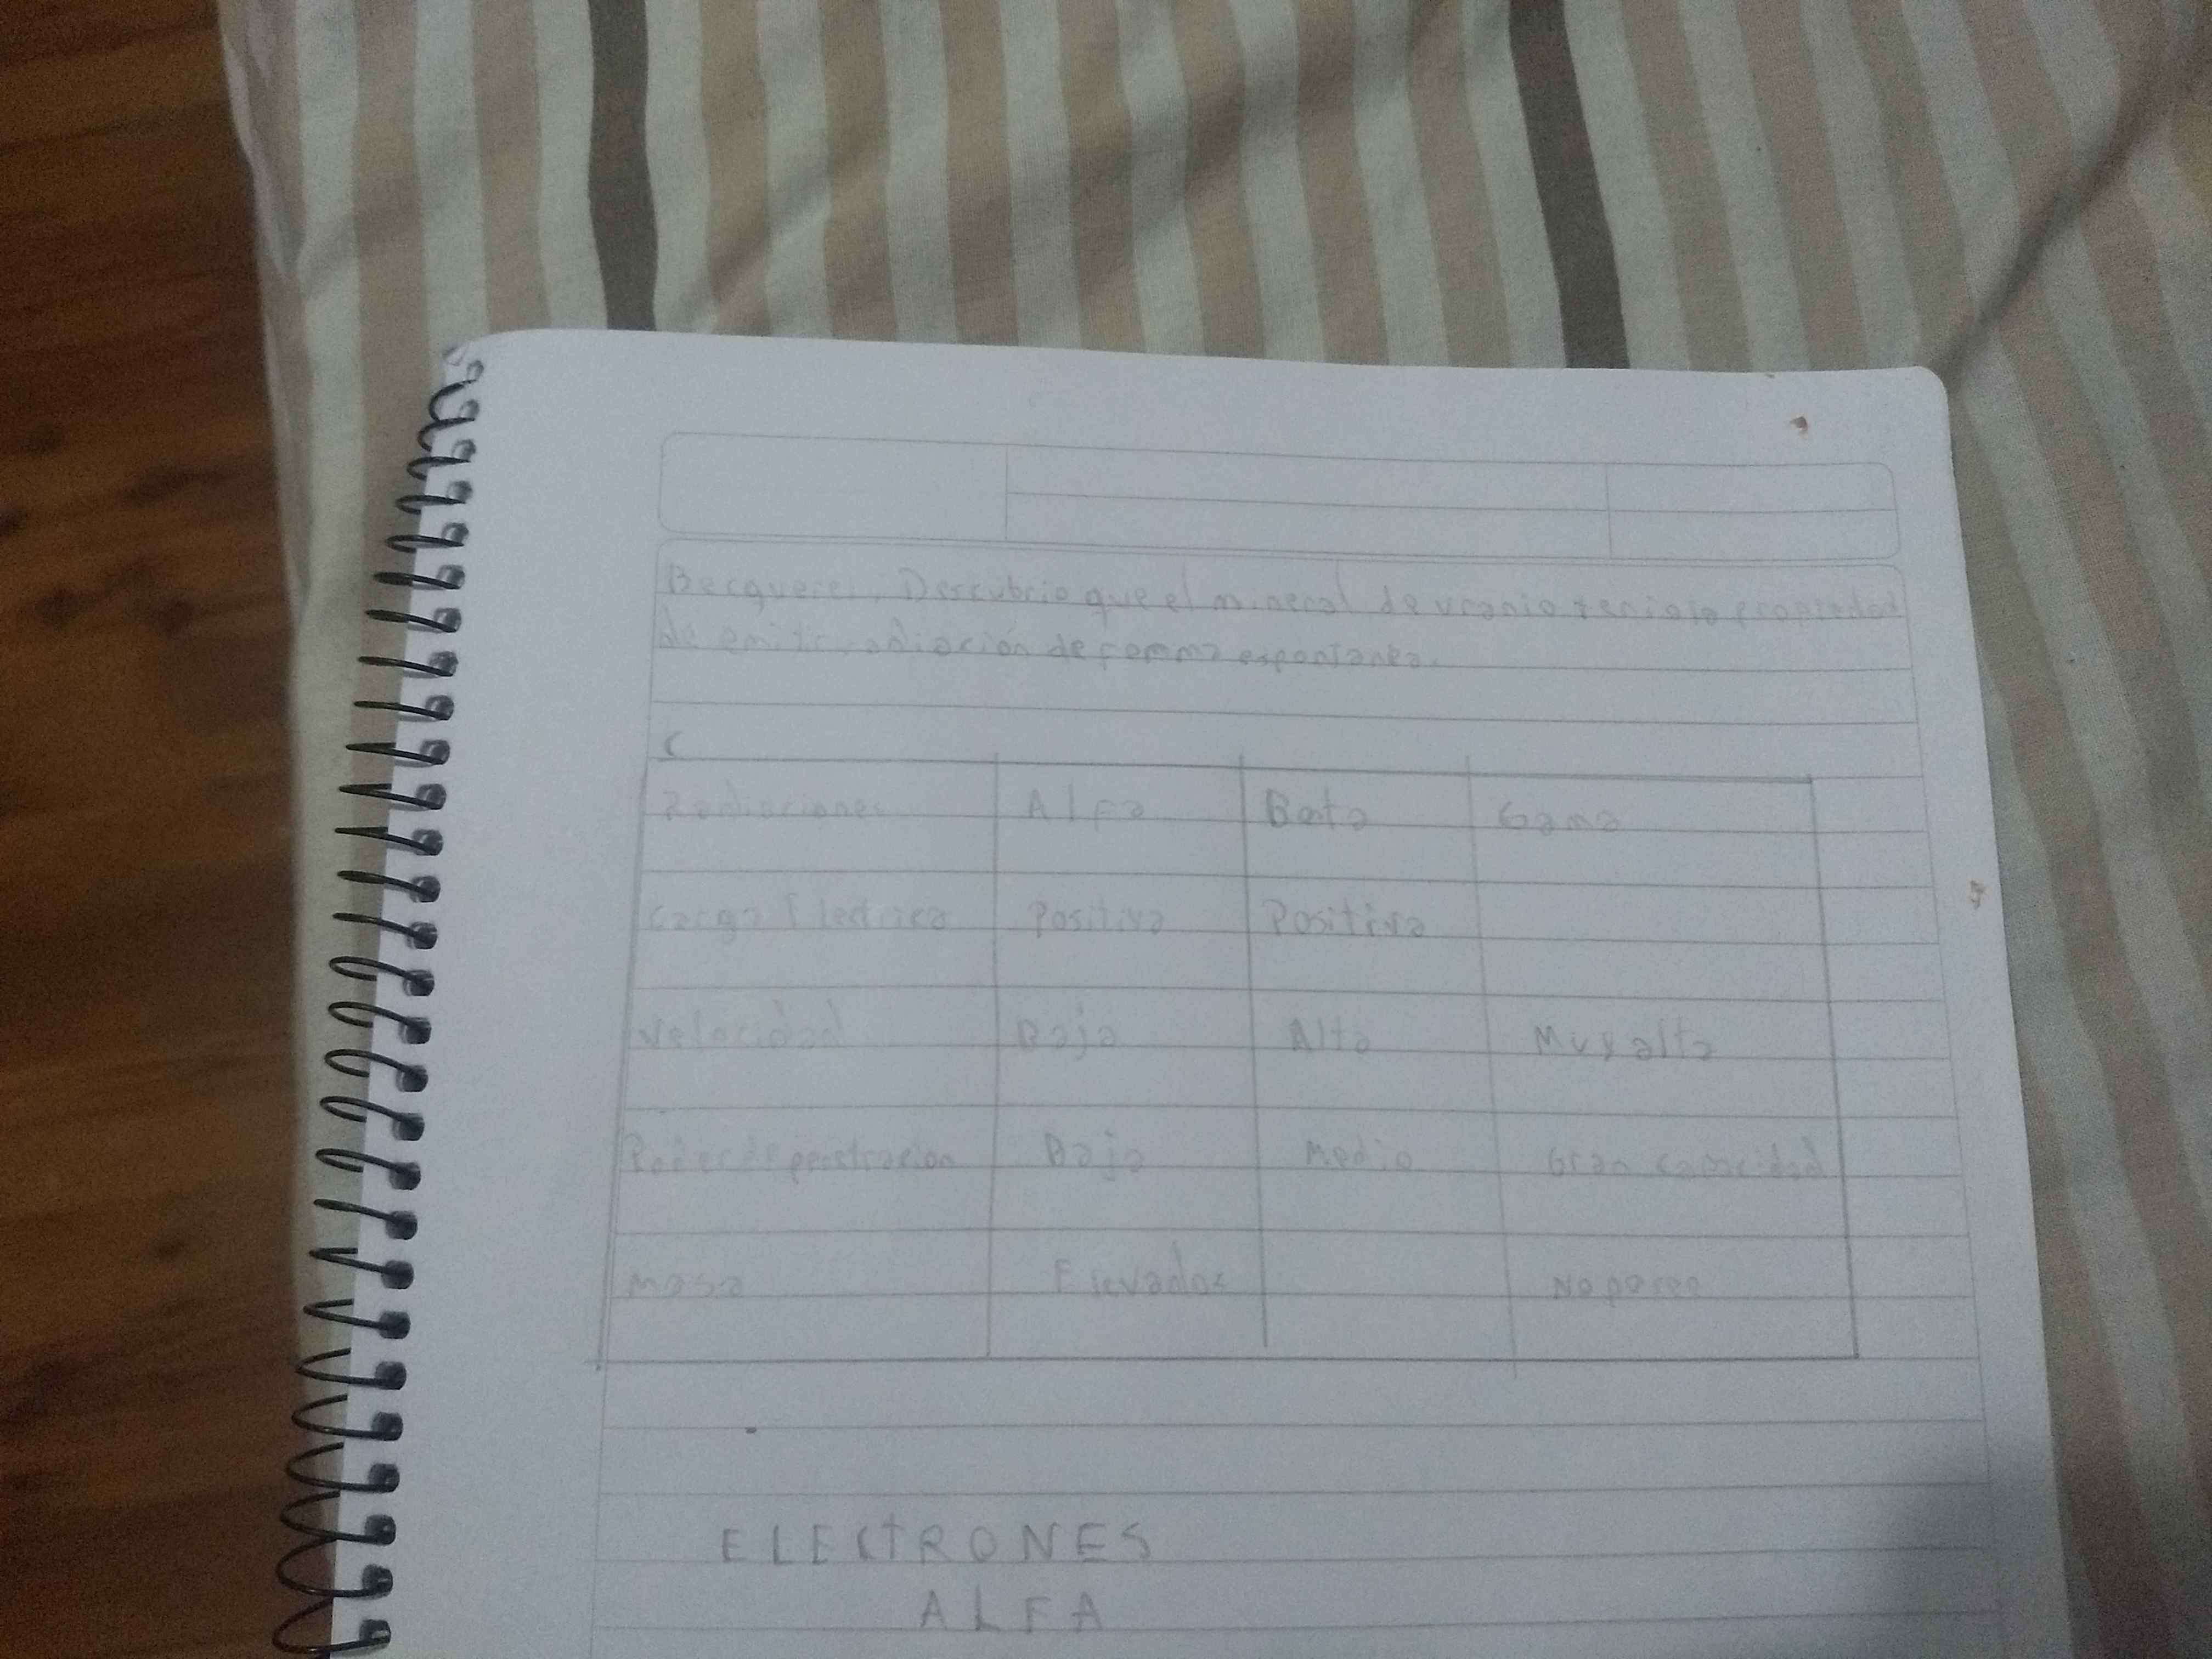 Becquerel: Descubrio que el mineral de uranio tenia la propiedad
de emitir radiación de forma espontanea.
C
Radiaciones Alfa Beta Gama
Carga Electrica Positiva Positiva
Velocidad Baja Alta Muy alta
Poder de penetracion Baja Medio Gran capacidad
Masa Elevados No posee
ELECtRONES
ALFA